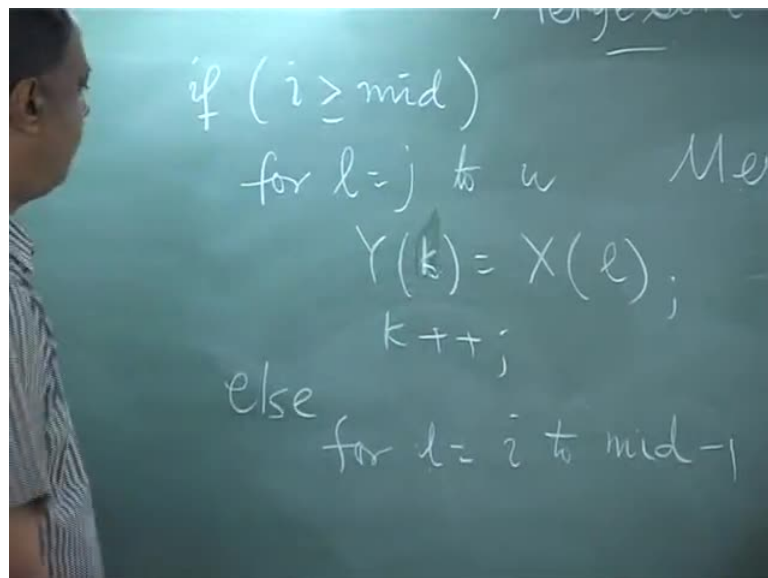 Mergesort
if (i ≥ mid)
for l = j to u
Me
Y(k) = X(l);
k++;
else
for l = i to mid-1